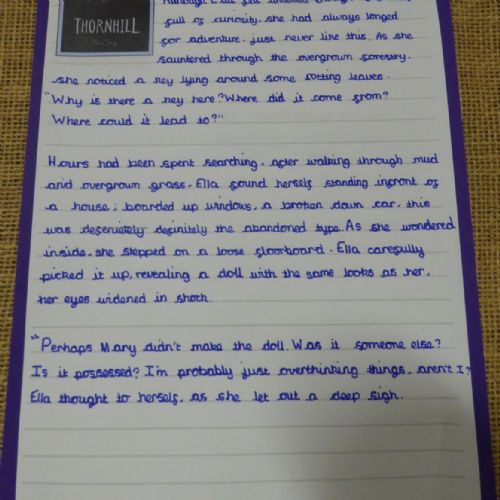 THORNHILL
full of curiosity. she had always longed
for adventure. just never like this. As she
sauntered through the overgrown forestry.
she noticed a key lying around some rotting leaves.
"Why is there a key here? Where did it come from?
Where could it lead to?"
Hours had been spent searching. after walking through mud
and overgrown grass. Ella found herself standing infront of
a house; boarded up windows, a broken down car, this
was definitely the abandoned type. As she wondered
inside, she stepped on a loose floorboard. Ella carefully
picked it up, revealing a doll with the same looks as her,
her eyes widened in shock.
"Perhaps Mary didn't make the doll. Was it someone else?
Is it possessed? I'm probably just overthinking things, aren't I?
Ella thought to herself, as she let out a deep sigh.